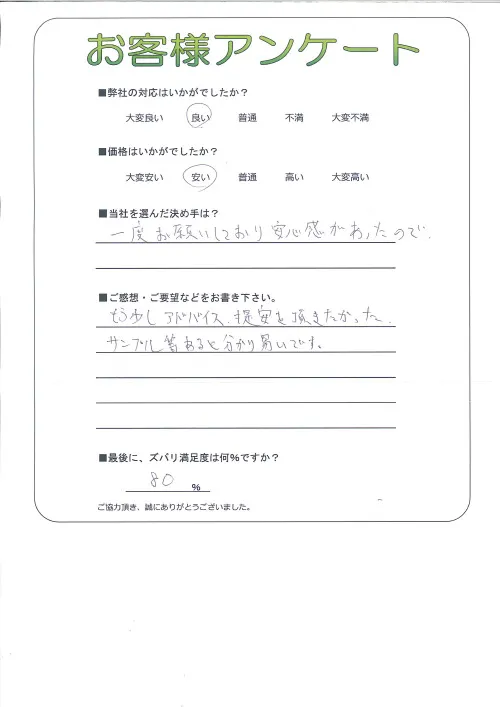 お客様アンケート
■弊社の対応はいかがでしたか？
大変良い 良い 普通 不満 大変不満
■価格はいかがでしたか？
大変安い 安い 普通 高い 大変高い
■当社を選んだ決め手は？
一度お願いしており安心感があったので.
■ご感想・ご要望などをお書き下さい。
もう少しアドバイス、提案を頂きたかった.
サンプル等あると分かり易いです。
■最後に、ズバリ満足度は何%ですか？
80 %
ご協力頂き、誠にありがとうございました。